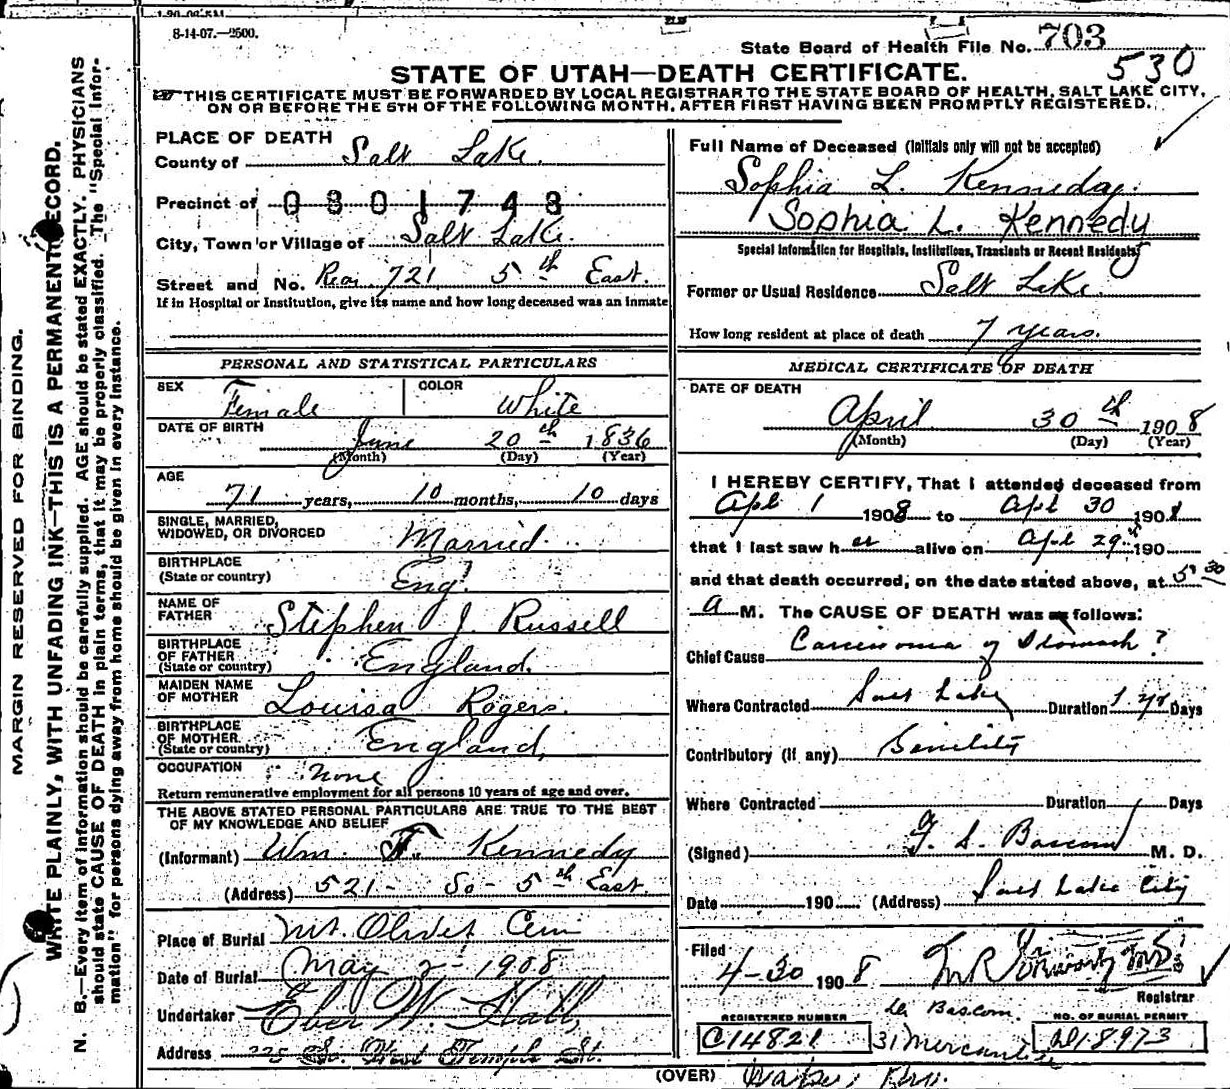 8-14-07.—2500.
State Board of Health File No. 703
530
STATE OF UTAH—DEATH CERTIFICATE.
THIS CERTIFICATE MUST BE FORWARDED BY LOCAL REGISTRAR TO THE STATE BOARD OF HEALTH, SALT LAKE CITY,
ON OR BEFORE THE 5TH OF THE FOLLOWING MONTH, AFTER FIRST HAVING BEEN PROMPTLY REGISTERED.
MARGIN RESERVED FOR BINDING.
WRITE PLAINLY, WITH UNFADING INK—THIS IS A PERMANENT RECORD.
N. B.—Every item of information should be carefully supplied. AGE should be stated EXACTLY. PHYSICIANS
should state CAUSE OF DEATH in plain terms, that it may be properly classified. The "Special Infor-
mation" for persons dying away from home should be given in every instance.
PLACE OF DEATH
County of Salt Lake.
Precinct of 0301743
City, Town or Village of Salt Lake.
Street and No. Rear 721 5th East.
If in Hospital or Institution, give its name and how long deceased was an inmate
PERSONAL AND STATISTICAL PARTICULARS
SEX Female COLOR White
DATE OF BIRTH June 20th 1836
(Month) (Day) (Year)
AGE
71 years, 10 months, 10 days
SINGLE, MARRIED,
WIDOWED, OR DIVORCED Married
BIRTHPLACE
(State or country) Eng.
NAME OF
FATHER Stephen J. Russell
BIRTHPLACE
OF FATHER
(State or country) England.
MAIDEN NAME
OF MOTHER Louisa Rogers.
BIRTHPLACE
OF MOTHER
(State or country) England,
OCCUPATION none
Return remunerative employment for all persons 10 years of age and over.
THE ABOVE STATED PERSONAL PARTICULARS ARE TRUE TO THE BEST
OF MY KNOWLEDGE AND BELIEF
(Informant) Wm. F. Kennedy
(Address) 521- So- 5th East.
Place of Burial Mt. Olivet Cem
Date of Burial May 2- 1908
Undertaker Eber W. Hall,
Address 225 So. West Temple St.
Full Name of Deceased (Initials only will not be accepted)
Sophia L. Kenneday.
Sophia L. Kennedy
Special Information for Hospitals, Institutions, Transients or Recent Residents
Former or Usual Residence Salt Lake.
How long resident at place of death 7 years.
MEDICAL CERTIFICATE OF DEATH
DATE OF DEATH
April 30th 1908
(Month) (Day) (Year)
I HEREBY CERTIFY, That I attended deceased from
Apl 1 1908 to Apl 30 1908
that I last saw her alive on Apl 29th 190
and that death occurred, on the date stated above, at 5 30
a M. The CAUSE OF DEATH was as follows:
Chief Cause Carcinoma of Stomach?
Where Contracted Salt Lake Duration 1 yr Days
Contributory (if any) Senility
Where Contracted Duration Days
(Signed) F. S. Bascom M. D.
Date 190 (Address) Salt Lake City
Filed 4-30 1908
Registrar
REGISTERED NUMBER
C14821
Dr Bascom.
31 Mercantile
NO. OF BURIAL PERMIT
A18973
(OVER)